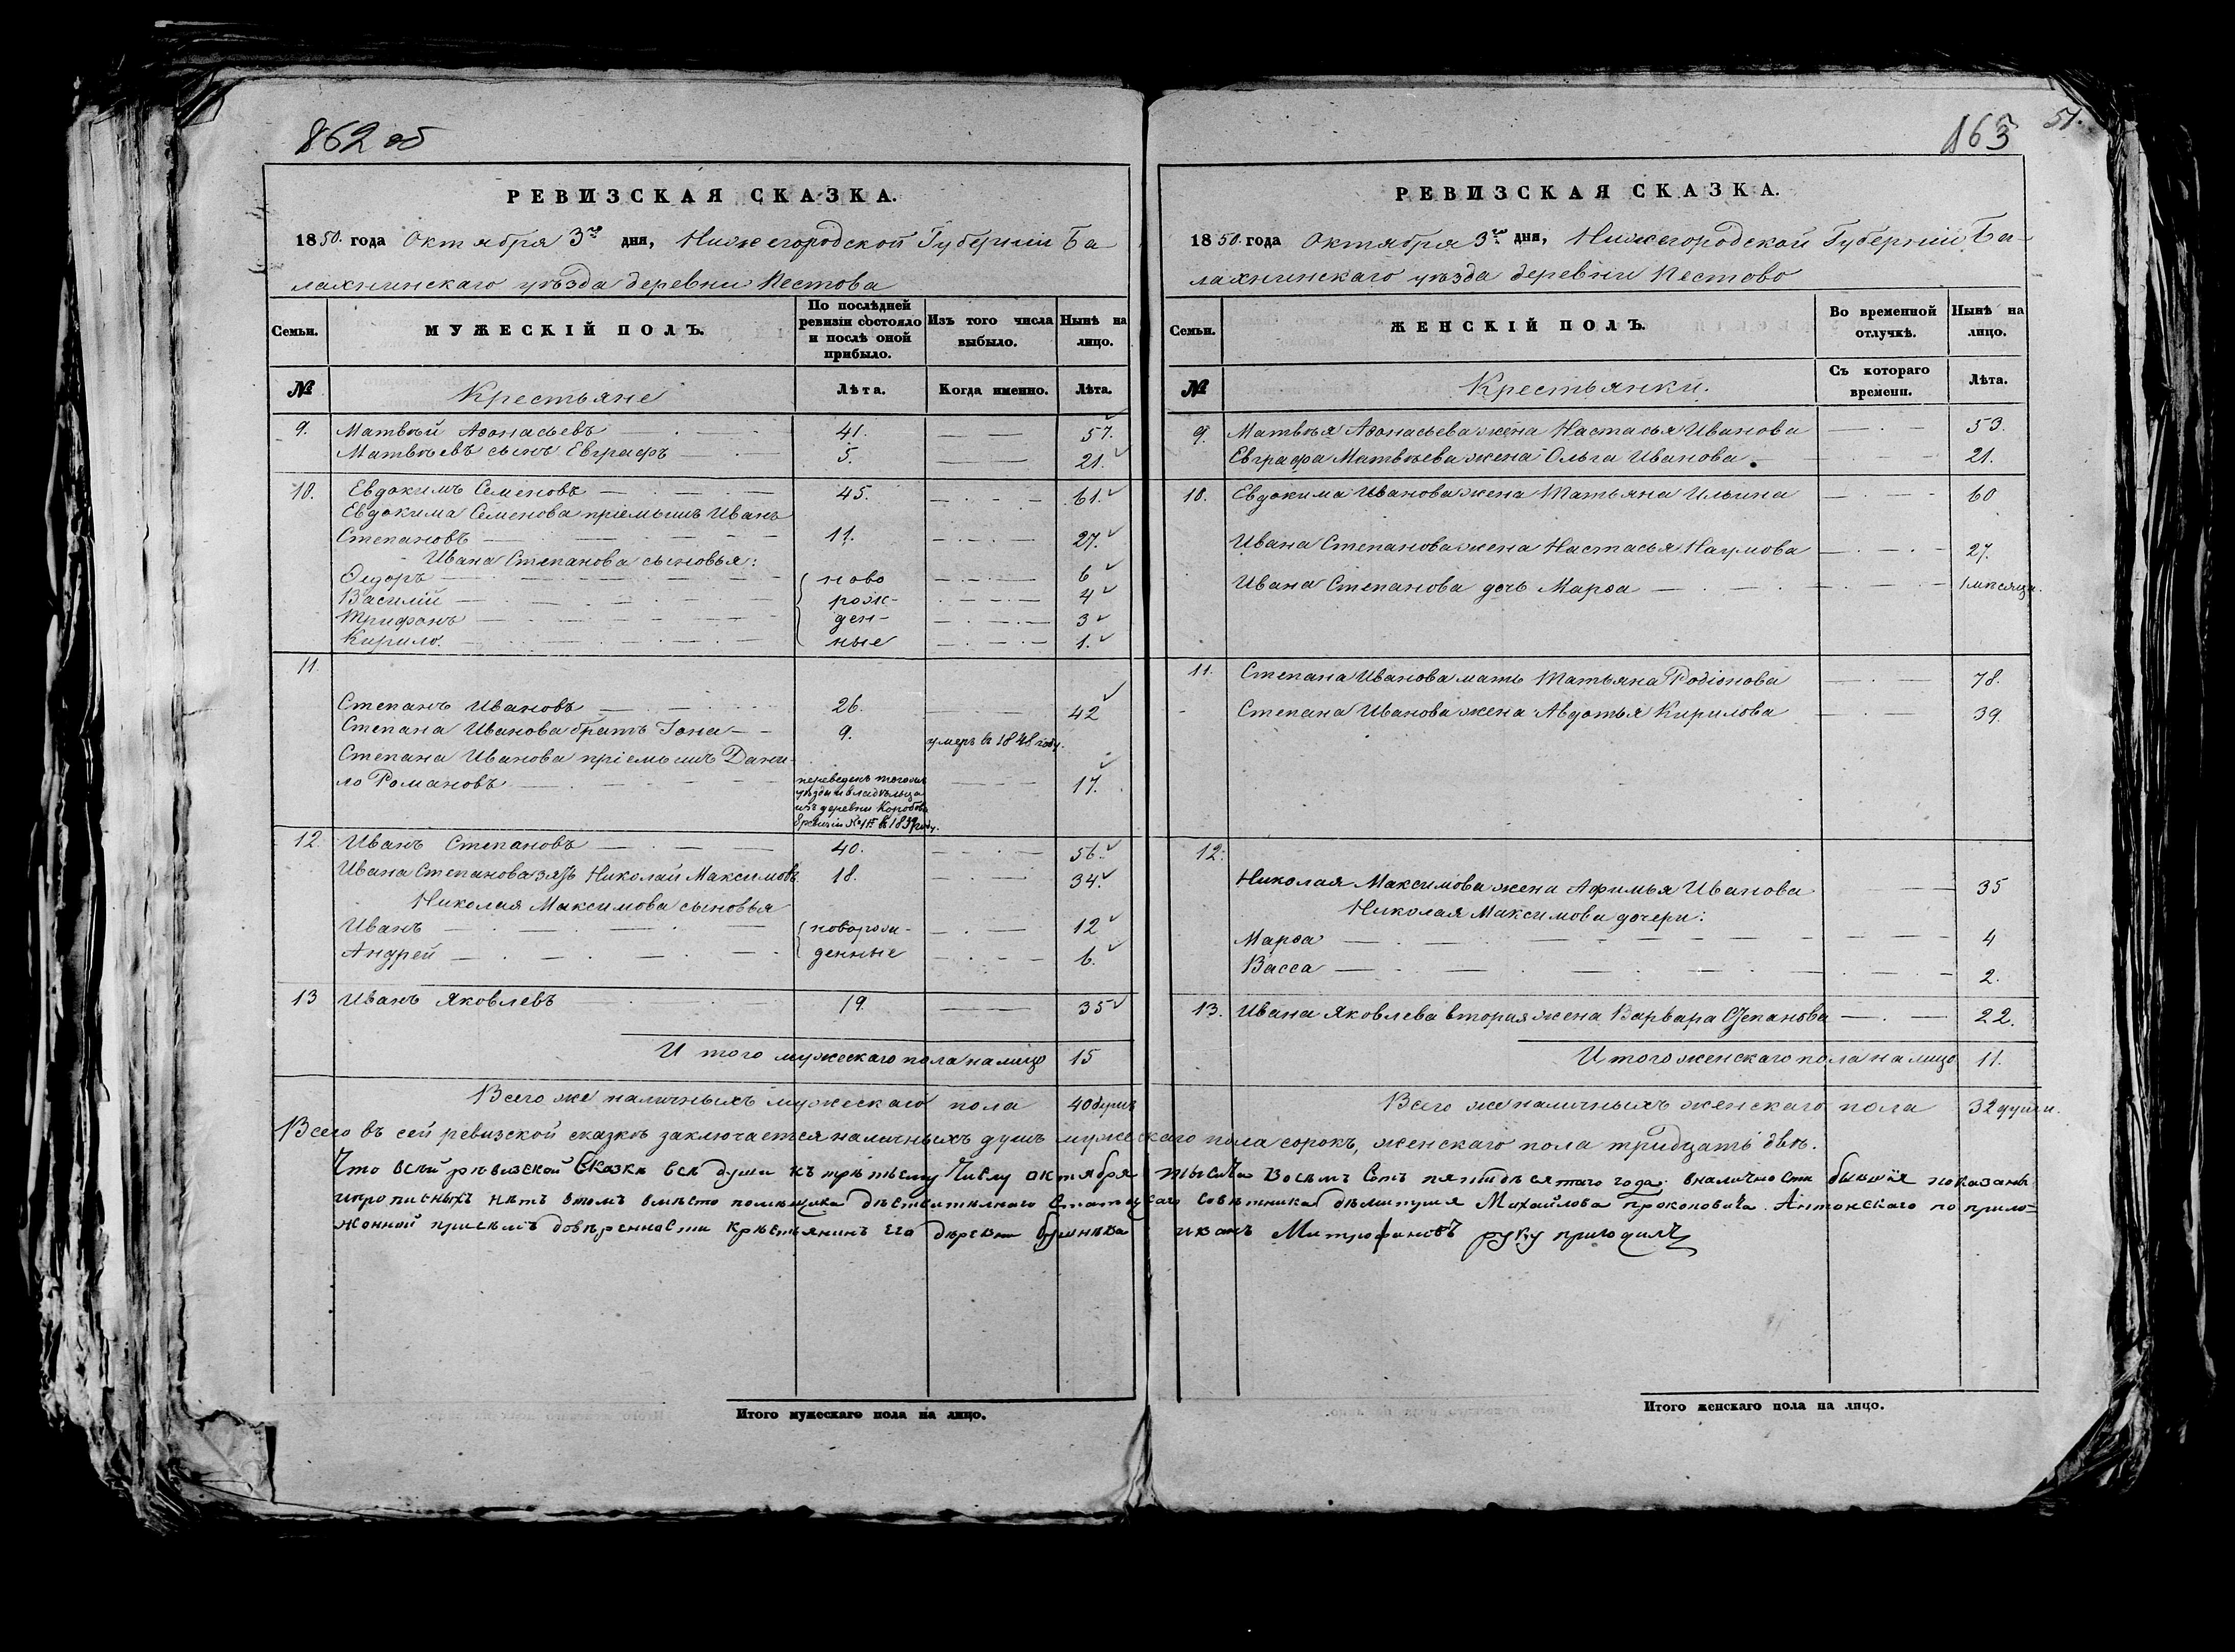 862 об
РЕВИЗСКАЯ СКАЗКА.
1850. года Октября 3го дня, Нижегородской Губерніи Ба
лахнинскаго уѣзда деревни Пестова
Семьи.
МУЖЕСКІЙ ПОЛЪ.
По послѣдней ревизіи состояло и послѣ оной прибыло.
Изъ того числа выбыло.
Нынѣ на лицо.
№ Крестьяне Лѣта. Когда именно. Лѣта.
9. Матвѣй Аѳонасьевъ 41. 57.
Матвѣевъ сынъ Евграфъ 5. 21.
10. Евдокимъ Семеновъ 45. 61.
Евдокима Семенова пріемышъ Иванъ
Степановъ 11. 27.
Ивана Степанова сыновья:
Ѳедоръ ново 6
Василій рож- 4
Трифонъ ден- 3
Кирило. ные 1.
11.
Степанъ Ивановъ 26. 42
Степана Иванова братъ Іона 9. умеръ в 1848 году.
Степана Иванова пріемышъ Дани-
ло Романовъ 17.
переведенъ тогоже
уѣзда и владѣльца
изъ деревни Коробова
8 ревизіи № в 1839 году.
12. Иванъ Степановъ 40. 56.
Ивана Степанова зять Николай Максимовъ 18. 34.
Николая Максимова сыновья
Иванъ новорож- 12
Андрей денные 6.
13 Иванъ Яковлевъ 19. 35
И того мужескаго пола налицо 15
Всего же наличныхъ мужескаго пола 40 душъ
163
51.
РЕВИЗСКАЯ СКАЗКА.
1850. года Октября 3го дня, Нижегородской Губерніи Ба-
лахнинскаго уѣзда деревни Пестово
Семьи.
ЖЕНСКІЙ ПОЛЪ.
Во временной отлучкѣ.
Нынѣ на лицо.
№ Крестьянки. Съ котораго времени. Лѣта.
9. Матвѣя Аѳонасьева жена Настасья Иванова 53.
Евграфа Матвѣева жена Ольга Иванова. 21.
10. Евдокима Иванова жена Татьяна Ильина 60
Ивана Степанова жена Настасья Наумова 27.
Ивана Степанова дочь Марѳа 1 мѣсяца.
11. Степана Иванова мать Татьяна Родіонова 78.
Степана Иванова жена Авдотья Кирилова 39.
12.
Николая Максимова жена Афимья Иванова 35
Николая Максимова дочери:
Марѳа 4
Васса 2.
13. Ивана Яковлева вторая жена Варвара Степанова 22.
И того женскаго пола на лицо 11.
Всего же наличныхъ женскаго пола 32 души.
Всего въ сей ревизской сказкѣ заключается наличныхъ душъ мужескаго пола сорокъ, женскаго пола тридцать двѣ.
Что всѣй рѣвизской Сказкѣ всѣ души къ трѣтьему Числу октября тысеча Восѣмъ Сотъ пятидѣсятаго года вналичности бывшіе показаны
ипрописныхъ нѣтъ втомъ вмѣсто помѣщика дѣствитѣлнаго Статскаго Совѣтника дѣмитрия Михайлова прокоповича Антонскаго по прило-
жонной присѣмъ довѣренности крѣстьянинъ его дѣревни иванъ Митрофановъ руку приложилъ
Итого мужескаго пола на лицо.
Итого женскаго пола на лицо.